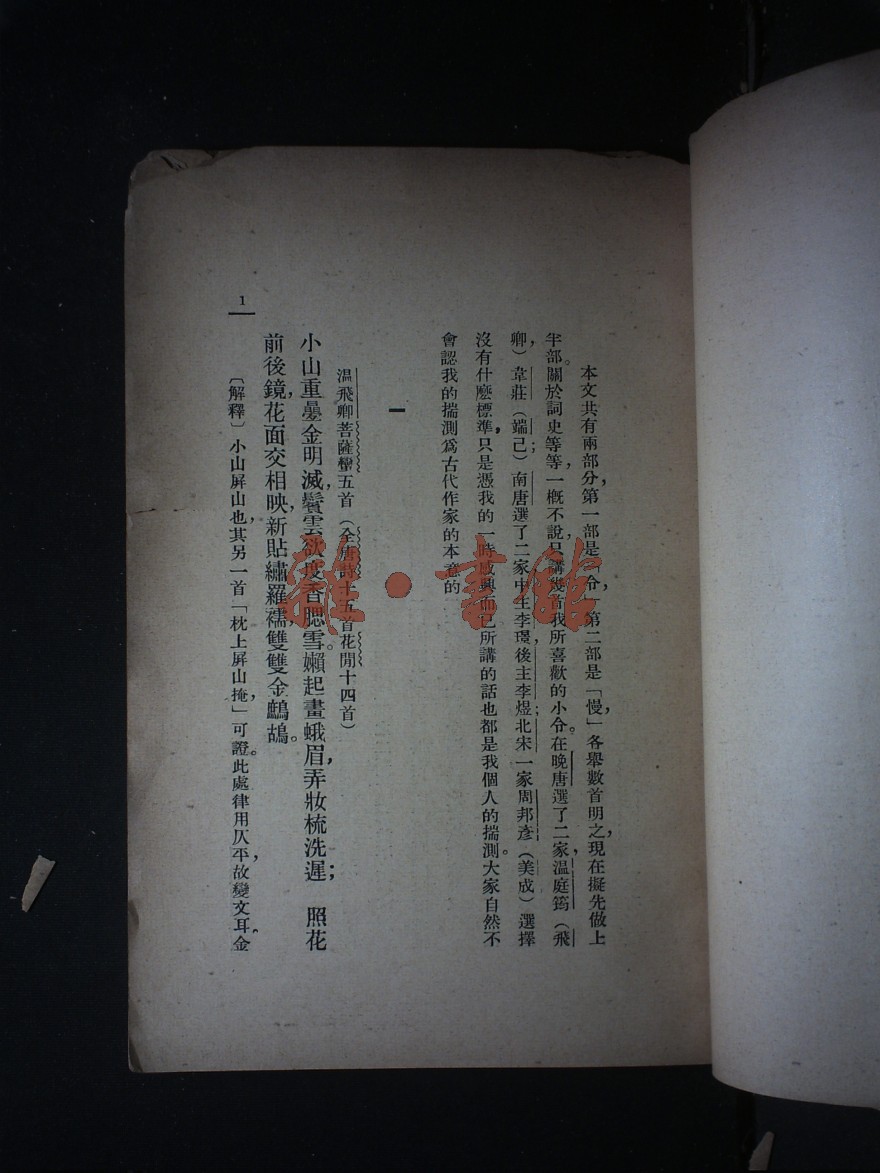 本文共有兩部分,第一部是「令」,第二部是「慢」,各舉數首明之,現在擬先做上
半部。關於詞史等等,一概不說,只講幾首我所喜歡的小令。在晚唐選了二家,温庭筠(飛
卿),韋莊(端己);南唐選了二家中主李璟,後主李煜;北宋一家周邦彥(美成)選擇
沒有什麼標準,只是憑我的一時感興而已所講的話也都是我個人的揣測。大家自然不
會認我的揣測爲古代作家的本意的
一
温飛卿菩薩蠻五首(全唐詩十五首花間十四首)
小山重疊金明滅,鬢雲欲度香腮雪。嬾起畫蛾眉,弄妝梳洗遲; 照花
前後鏡,花面交相映,新貼繡羅襦,雙雙金鷓鴣。
〔解釋〕小山屏山也,其另一首「枕上屏山掩」,可證。此處律用仄平,故變文耳。金
1
雜·書館